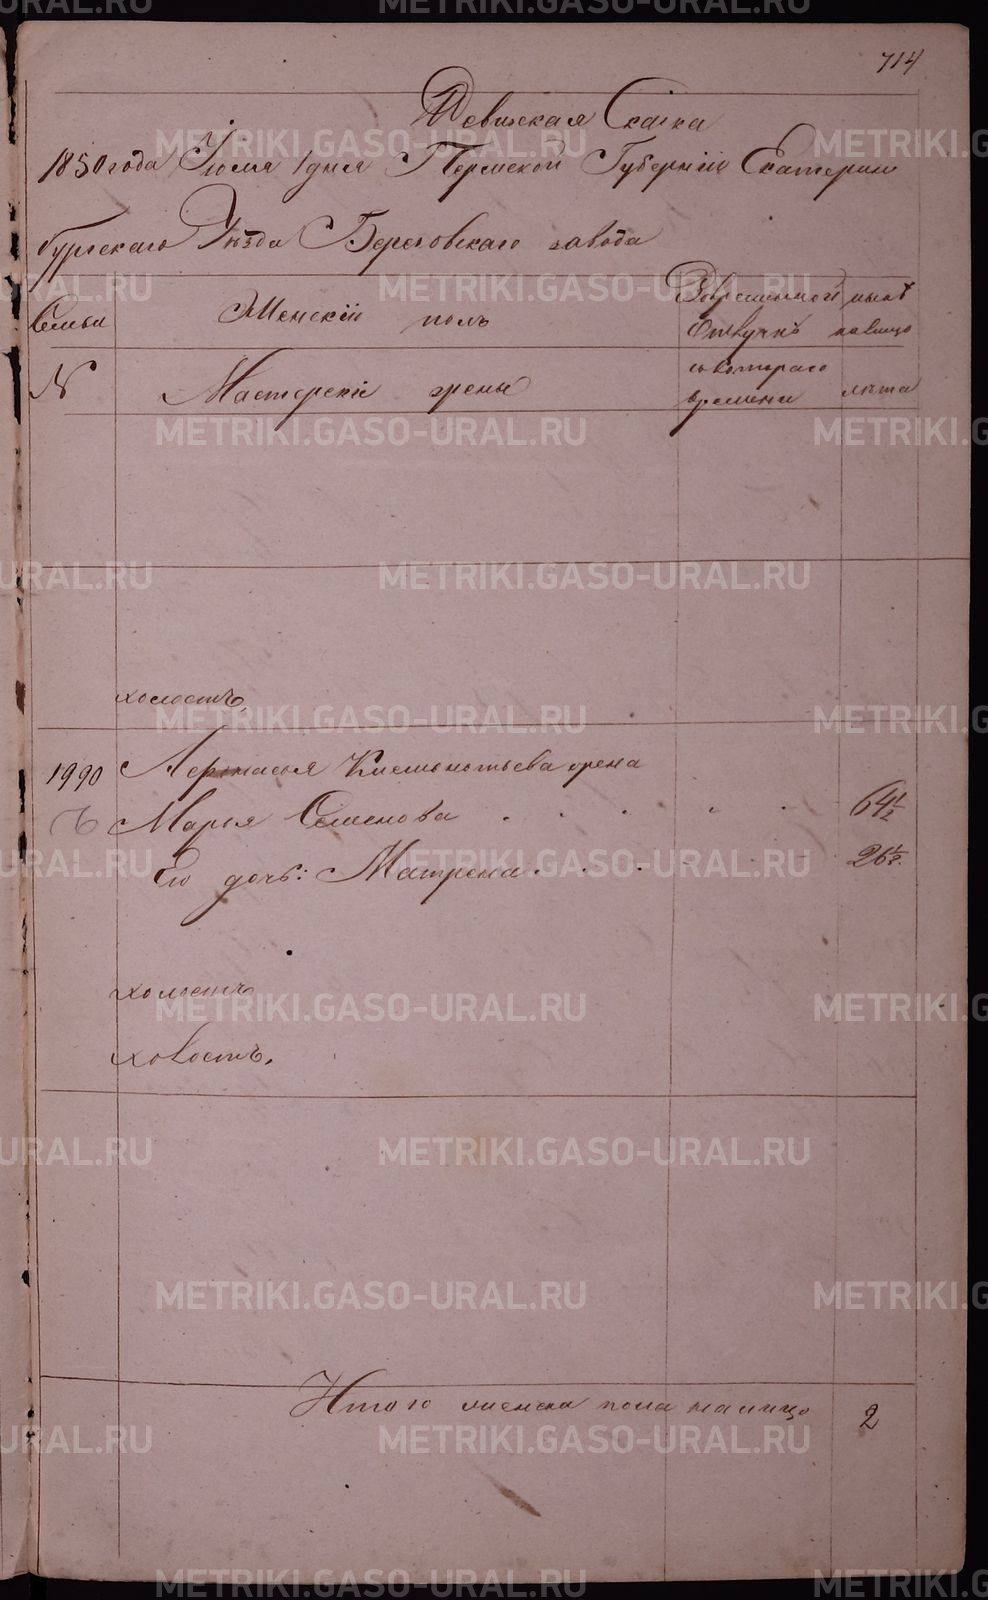 714
Ревизская Сказка
1850 года Июля 1 дня Пермской Губернiи Екатерин
бургскаго Уѣзда Березовскаго завода
Семьи
Женскiй полъ
Во временной отлучкѣ
нынѣ налицо
№
Мастерскiе жены
съ котораго времени
лѣта
холостъ,
1990 Игнатьева жена
Марья Семенова . . . . . 64 1/2
Его дочь: Матрена . . . . 26 1/2.
холостъ
холостъ.
Итого женска пола налицо 2
METRIKI.GASO-URAL.RU